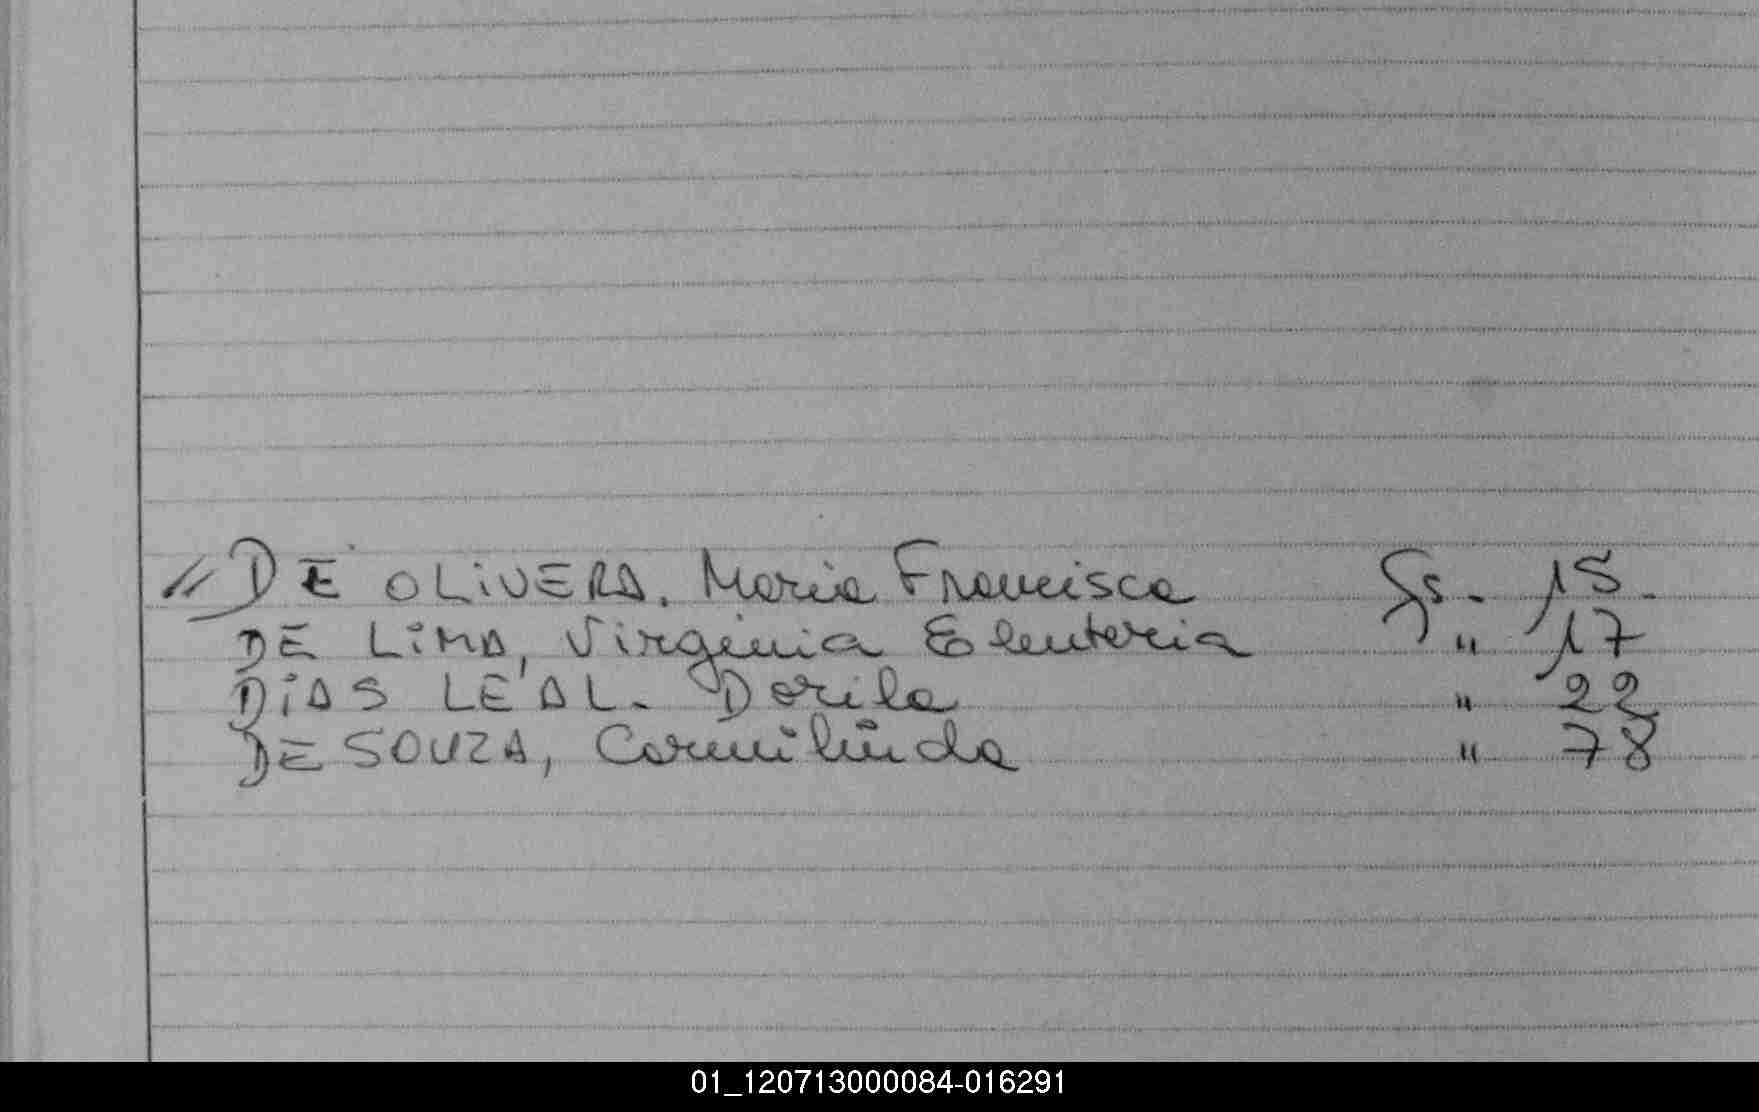 // DE OLIVERA. Maria Francisca Fs. 15.
DE LIMA, Virginia Eleuteria " 17
DIAS LEAL. Dorila " 22
DE SOUZA, Carmilinda " 78
01_120713000084-016291